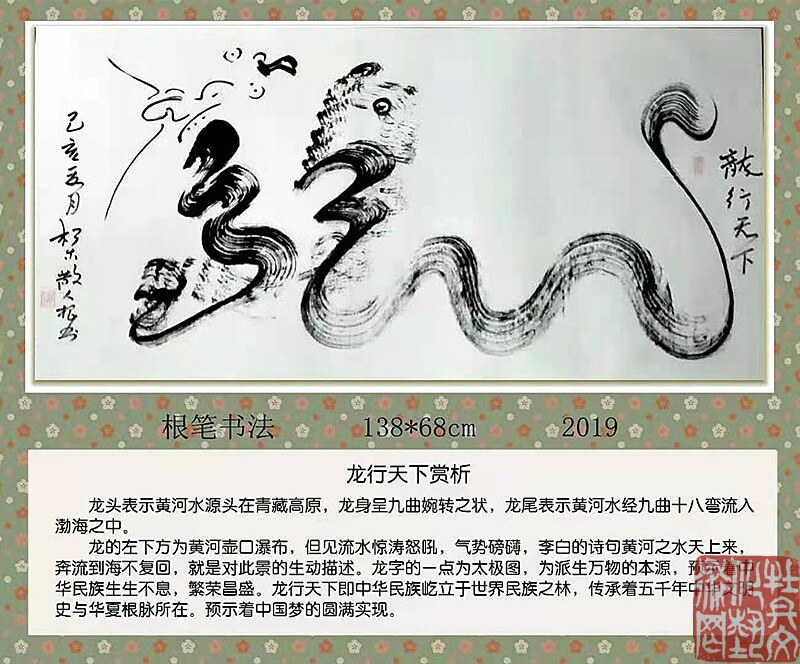 龍行天下
己亥五月
根书
根笔书法 138*68cm 2019
龙行天下赏析
龙头表示黄河水源头在青藏高原，龙身呈九曲婉转之状，龙尾表示黄河水经九曲十八弯流入
渤海之中。
龙的左下方为黄河壶口瀑布，但见流水惊涛怒吼，气势磅礴，李白的诗句黄河之水天上来，
奔流到海不复回，就是对此景的生动描述。龙字的一点为太极图，为派生万物的本源，预示着中
华民族生生不息，繁荣昌盛。龙行天下即中华民族屹立于世界民族之林，传承着五千年中华文明
史与华夏根脉所在。预示着中国梦的圆满实现。